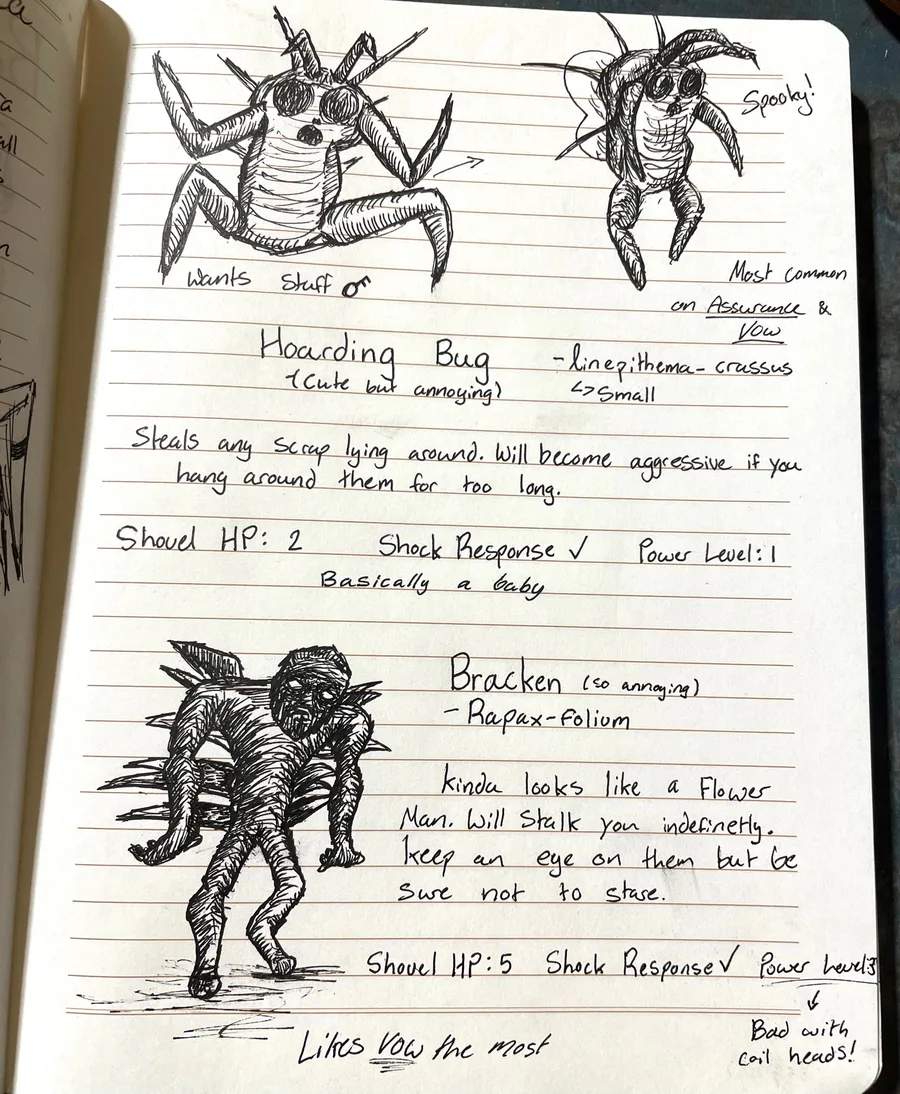 a
all
n
Spooky!
Wants Stuff
Most common
on Assurance &
Vow
Hoarding Bug
-linepithema-crassus
(Cute but annoying)
↳ Small
Steals any scrap lying around. Will become aggressive if you
hang around them for too long.
Shovel HP: 2 Shock Response ✓ Power Level: 1
Basically a baby
Bracken (so annoying)
- Rapax-Folium
kinda looks like a Flower
Man. Will Stalk you indefinetly.
keep an eye on them but be
sure not to stare.
Shovel HP: 5 Shock Response ✓ Power Level: 3
Bad with
coil heads!
Likes Vow the most